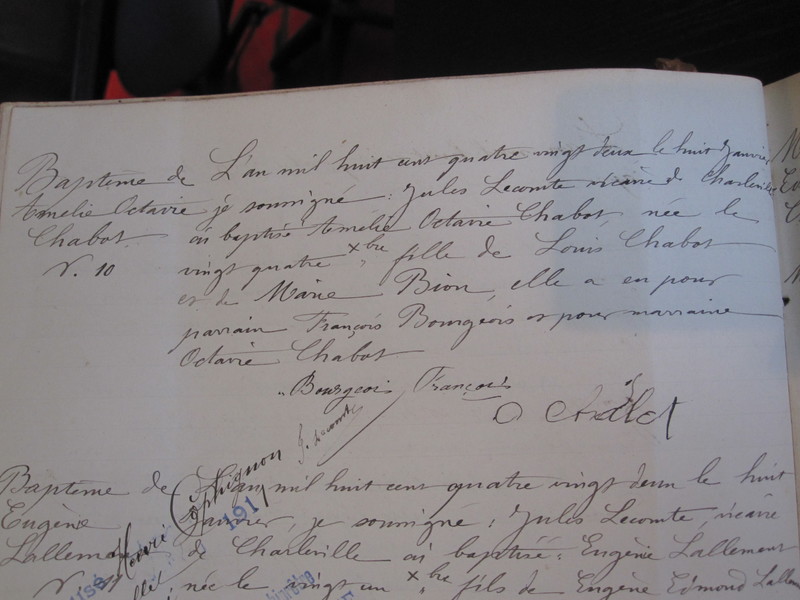 Baptême de
Amélie Octavie
Chabot
N. 10
L'an mil huit cent quatre vingt deux le huit Janvier
je soussigné : Jules Lecomte vicaire de Charleville
ai baptisé Amélie Octavie Chabot, née le
vingt quatre Xbre fille de Louis Chabot
et de Marie Bion, elle a eu pour
parrain François Bourgeois et pour marraine
Octavie Chabot
Bourgeois François
J. Lecomte
Baptême de
Eugène
Lallement
N. 11
L'an mil huit cent quatre vingt deux le huit
Janvier, je soussigné : Jules Lecomte, vicaire
de Charleville ai baptisé : Eugène Lallement
née le vingt un Xbre fils de Eugène Edmond Lallem
191